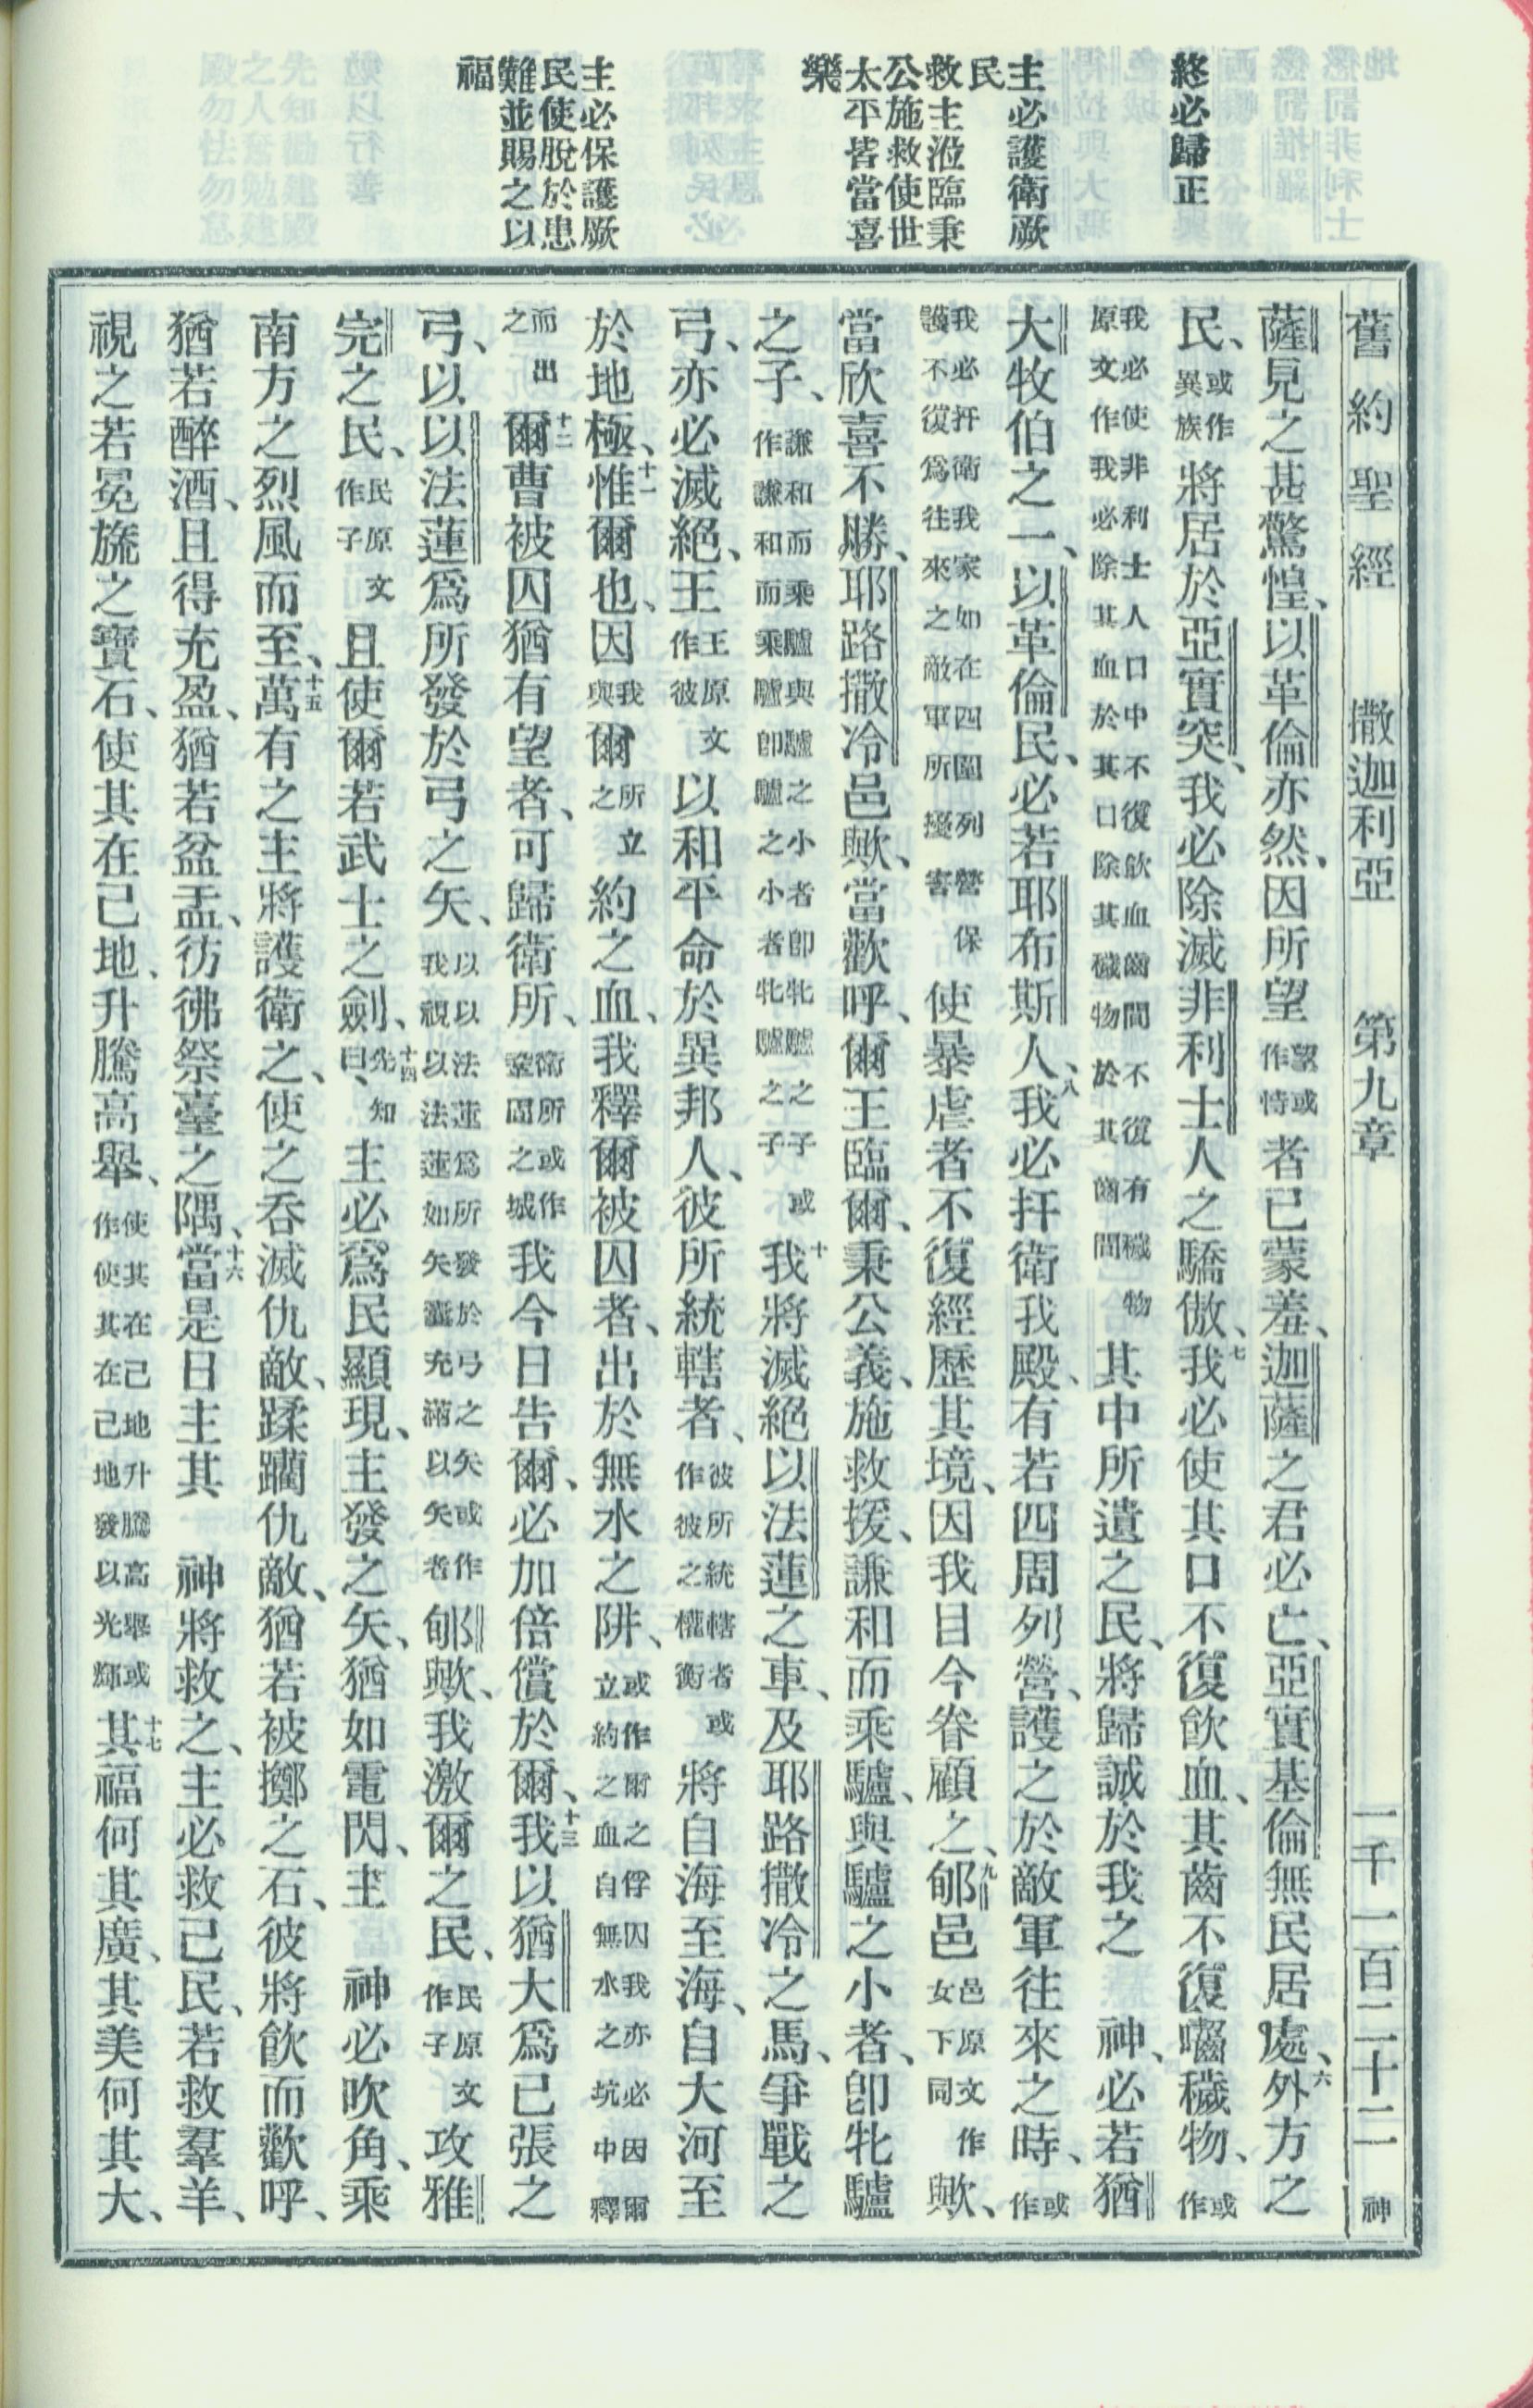 舊約聖經　撒迦利亞　第九章　一千一百二十二　神
終必歸正
主必護衛厥
民
救主涖臨秉
公施救使世
太平皆當喜
樂
主必保護厥
民使脫於患
難並賜之以
福
薩見之甚驚惶、以革倫亦然、因所望望或作恃者已蒙羞、迦薩之君必亡、亞實基倫無民居處、六外方之
民、或作異族將居於亞實突、我必除滅非利士人之驕傲、七我必使其口不復飲血、其齒不復囓穢物、或作
我必使非利士人口中不復飲血齒間不復有穢物原文作我必除其血於其口除其穢物於其齒間其中所遺之民、將歸誠於我之　神、必若猶
大牧伯之一、以革倫民、必若耶布斯人、八我必扞衛我殿、有若四周列營、護之於敵軍往來之時、或作
我必扞衛我家如在四圍列營保護不復爲往來之敵軍所擾害使暴虐者不復經歷其境、因我目今眷顧之、九郇邑邑原文作女下同歟、
當欣喜不勝、耶路撒冷邑歟、當歡呼、爾王臨爾、秉公義、施救援、謙和而乘驢、與驢之小者、卽牝驢
之子、謙和而乘驢與驢之小者卽牝驢之子或作謙和而乘驢卽驢之小者牝驢之子十我將滅絕以法蓮之車、及耶路撒冷之馬、爭戰之
弓、亦必滅絕、王王原文作彼以和平命於異邦人、彼所統轄者、彼所統轄者或作彼之權衡將自海至海、自大河至
於地極、十一惟爾也、因我與爾所立之約之血、我釋爾被囚者、出於無水之阱、或作爾之俘囚我亦必因爾立約之血自無水之坑中釋
而出之十二爾曹被囚猶有望者、可歸衛所、衛所或作鞏固之城我今日告爾、必加倍償於爾、十三我以猶大爲已張之
弓、以以法蓮爲所發於弓之矢、以以法蓮爲所發於弓之矢或作我視以法蓮如矢囊充滿以矢者郇歟、我激爾之民、民原文作子攻雅
完之民、民原文作子且使爾若武士之劍、十四先知曰、主必爲民顯現、主發之矢、猶如電閃、主　神必吹角、乘
南方之烈風而至、十五萬有之主將護衛之、使之吞滅仇敵、蹂躪仇敵、猶若被擲之石、彼將飲而歡呼、
猶若醉酒、且得充盈、猶若盆盂、彷彿祭臺之隅、十六當是日主其　神將救之、主必救己民、若救羣羊、
視之若冕旒之寶石、使其在己地、升騰高舉、使其在己地升騰高舉或作使其在己地發以光輝十七其福何其廣、其美何其大、